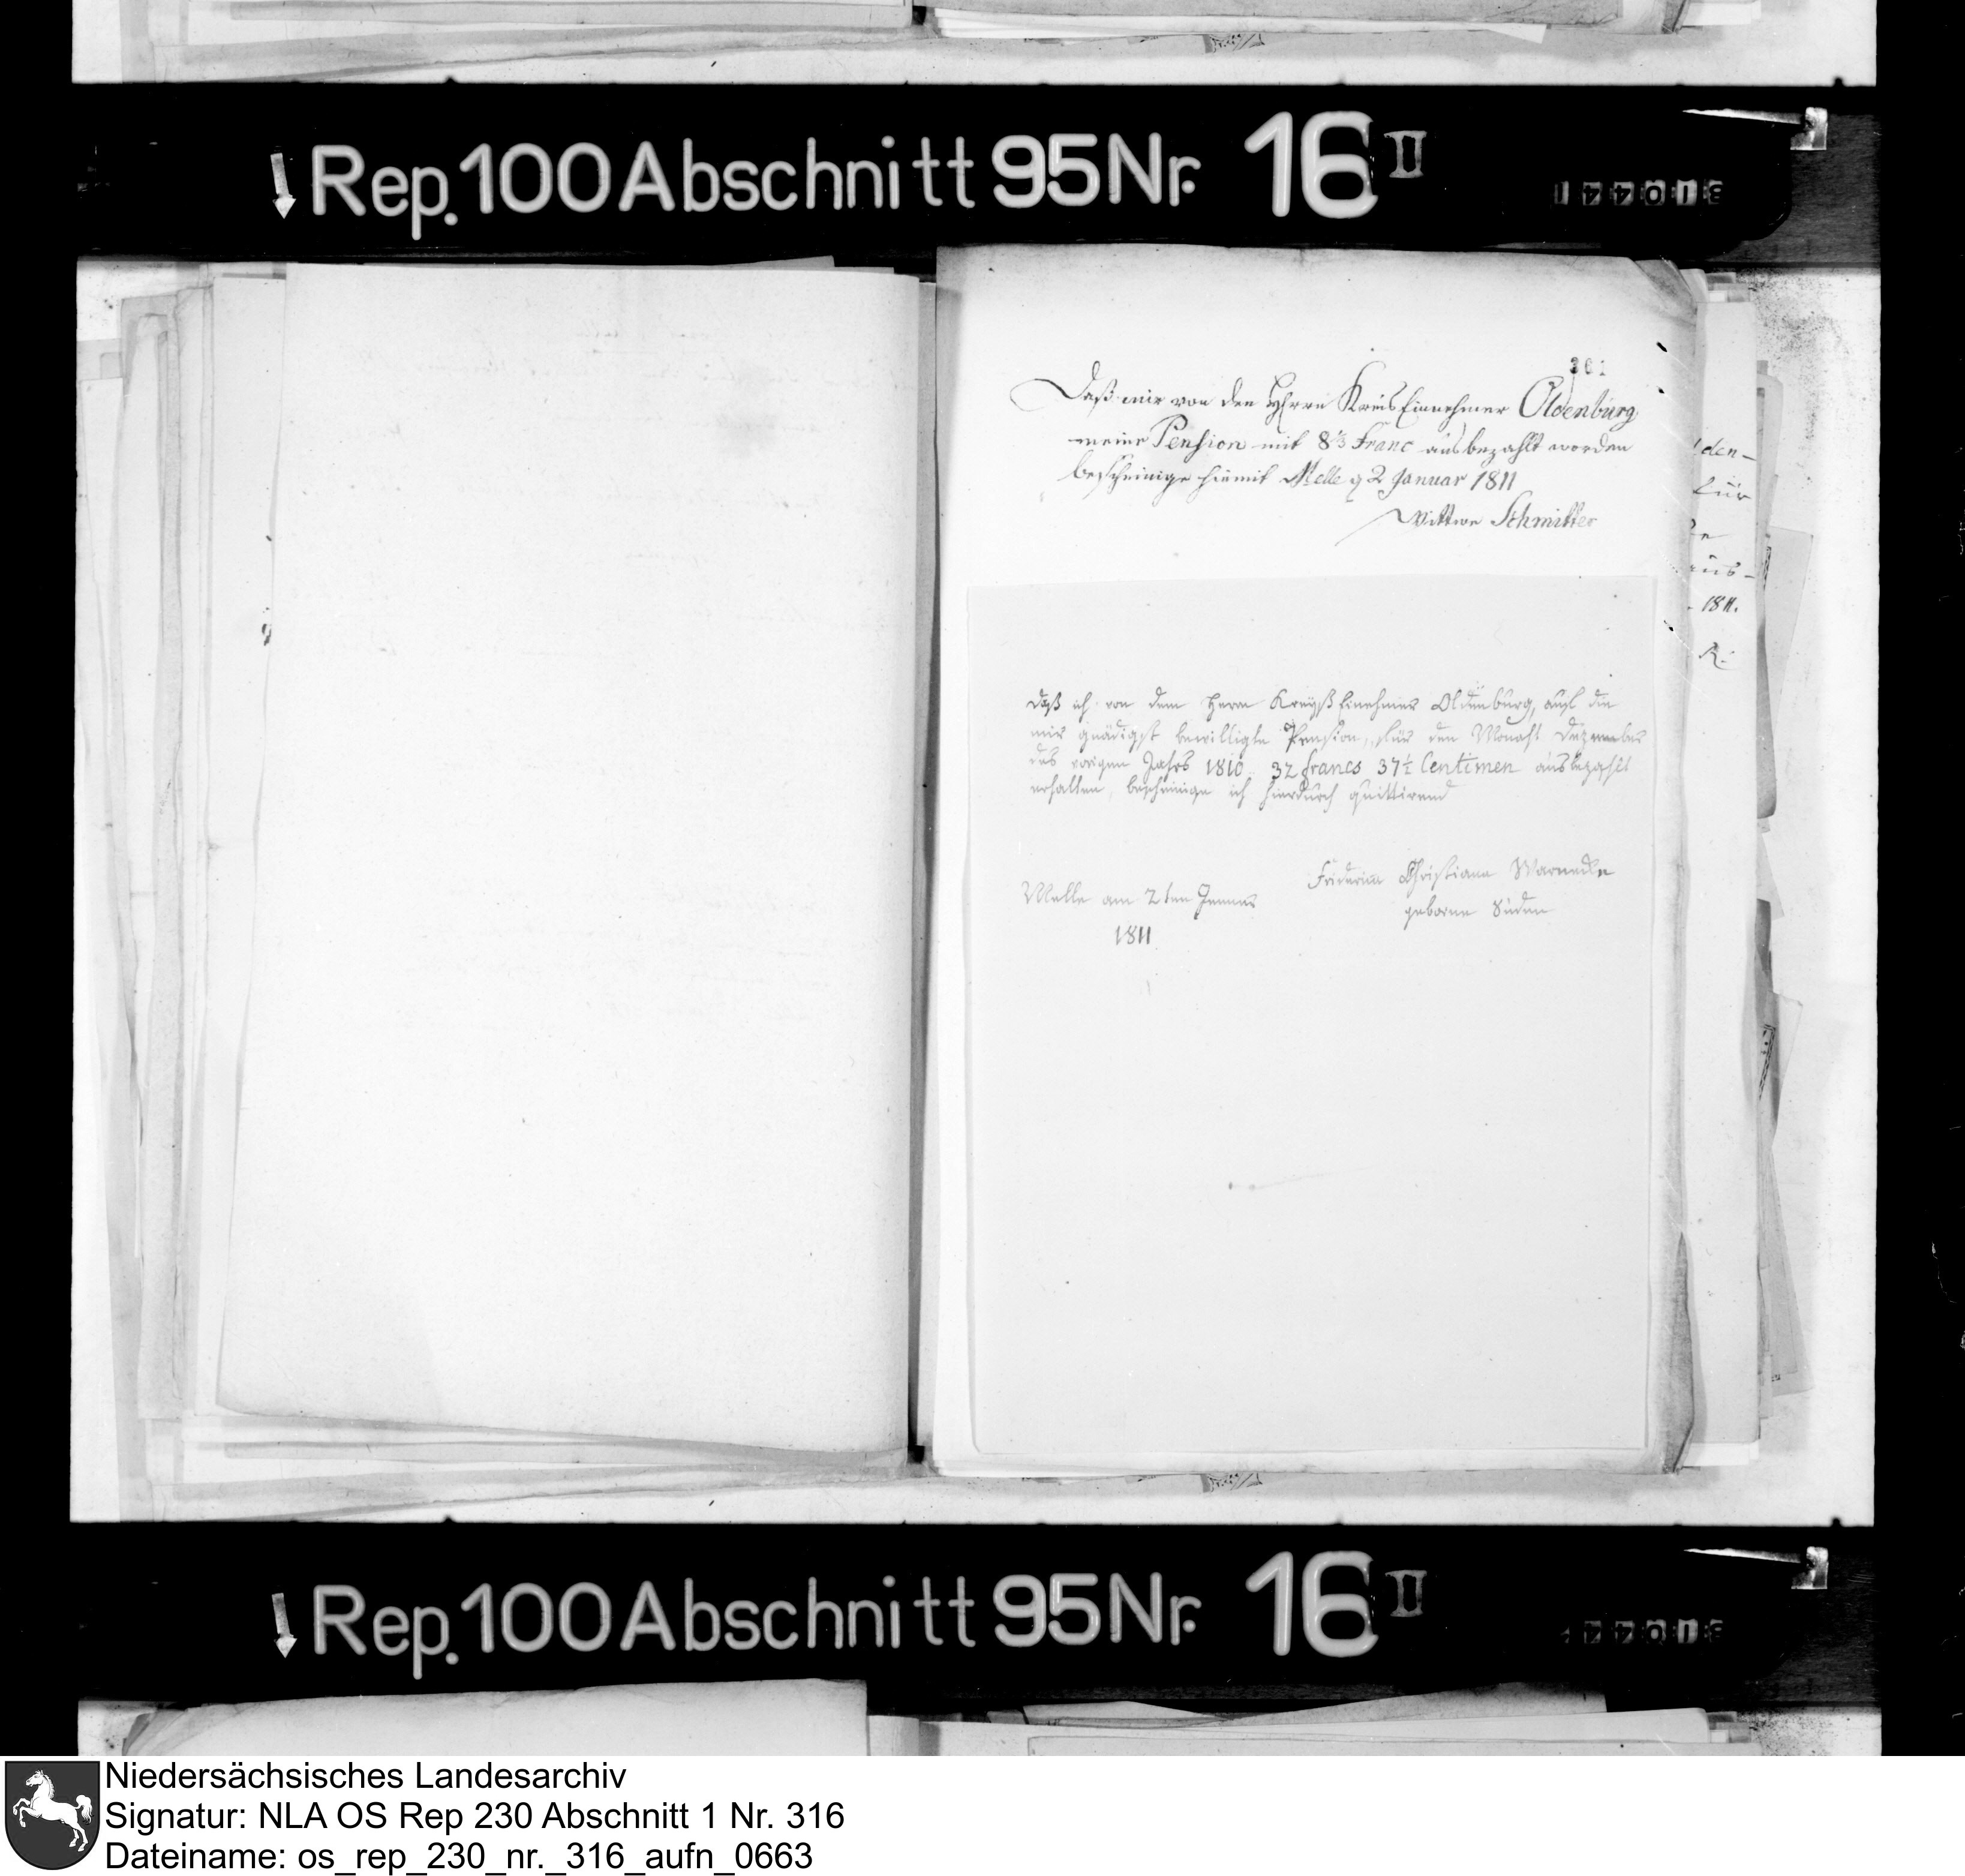 Rep. 100 Abschnitt 95 Nr. 16 II
310441
361
Daß mir von den Herrn Kreis Einnehmer Oldenburg
meine Pension mit 8 1/3 Franc ausbezahlt worden
bescheinige hiemit Melle d 2 Januar 1811
Wittwe Schmitter
den-
für
aus-
1811.
Daß ich von dem Herrn Kreyß Einehmer Oldenburg, auf die
mir gnädigst bewilligte Pension, für den Monaht Dezember
des vorigen Jahrs 1810 32 francs 37 1/2 Centimen ausbezahlt
erhalten, bescheinige ich hierdurch quittirend
Friderica Christiana Warnecke
geborne Süden
Melle am 2ten Jenner
1811
Rep. 100 Abschnitt 95 Nr. 16 II
Niedersächsisches Landesarchiv
Signatur: NLA OS Rep 230 Abschnitt 1 Nr. 316
Dateiname: os_rep_230_nr._316_aufn_0663